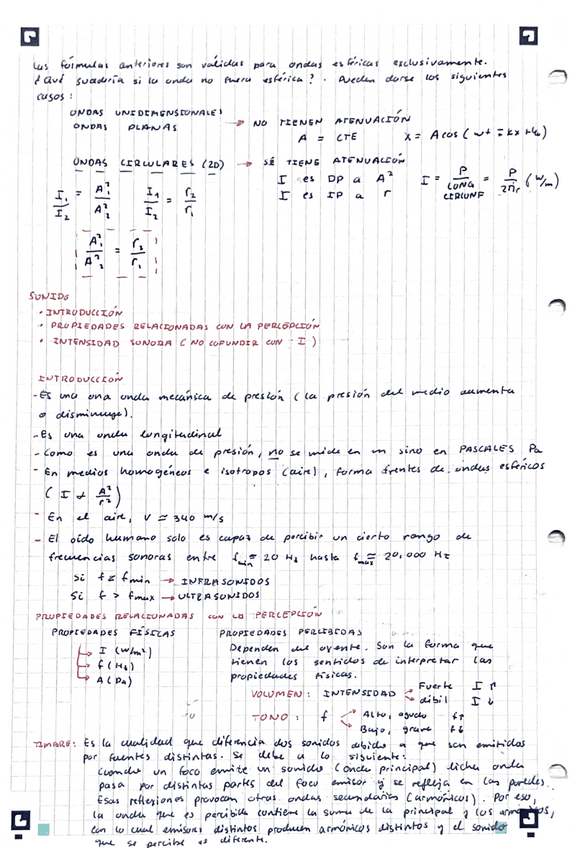 Las fórmulas anteriores son válidas para ondas esféricas exclusivamente.
¿Qué sucedería si la onda no fuera esférica?. Pueden darse los siguientes
casos:
ONDAS UNIDIMENSIONALES
ONDAS PLANAS → NO TIENEN ATENUACIÓN
A = CTE X = A cos (ωt ∓ kx + φ₀)
ONDAS CIRCULARES (2D) → SÍ TIENE ATENUACIÓN
I es DP a A²
I es IP a r
I = P / LONG CIRCUNF = P / 2πr (W/m)
I₁/I₂ = A₁²/A₂² I₁/I₂ = r₂/r₁
A₁²/A₂² = r₂/r₁
SONIDO
• INTRODUCCIÓN
• PROPIEDADES RELACIONADAS CON LA PERCEPCIÓN
• INTENSIDAD SONORA (NO COFUNDIR CON I)
INTRODUCCIÓN
- Es una onda mecánica de presión (la presión del medio aumenta
o disminuye).
- Es una onda longitudinal
- Como es una onda de presión, no se mide en m sino en PASCALES Pa
- En medios homogéneos e isotropos (aire), forma frentes de ondas esféricos
(I α A²/r²)
- En el aire, v ≃ 340 m/s
- El oído humano solo es capaz de percibir un cierto rango de
frecuencias sonoras entre fmin ≃ 20 Hz hasta fmax ≃ 20.000 Hz
Si f < fmin → INFRASONIDOS
Si f > fmax → ULTRASONIDOS
PROPIEDADES RELACIONADAS con LA PERCEPCIÓN
PROPIEDADES FÍSICAS
I (W/m²)
f (Hz)
A (Pa)
PROPIEDADES PERCIBIDAS
Dependen del oyente. Son la forma que
tienen los sentidos de interpretar las
propiedades físicas.
VOLUMEN: INTENSIDAD → Fuerte I ↑
→ débil I ↓
TONO: f → Alto, agudo f↑
→ Bajo, grave f↓
TIMBRE: Es la cualidad que diferencia dos sonidos debido a que son emitidos
por fuentes distintas. Se debe a lo siguiente:
Cuando un foco emite un sonido (onda principal) dicha onda
pasa por distintas partes del foco emisor y se refleja en las paredes.
Esas reflexiones provocan otras ondas secundarias (armónicos). Por eso,
la onda que es percibida contiene la suma de la principal y los armónicos,
con lo cual emisores distintos producen armónicos distintos y el sonido
que se percibe es diferente.